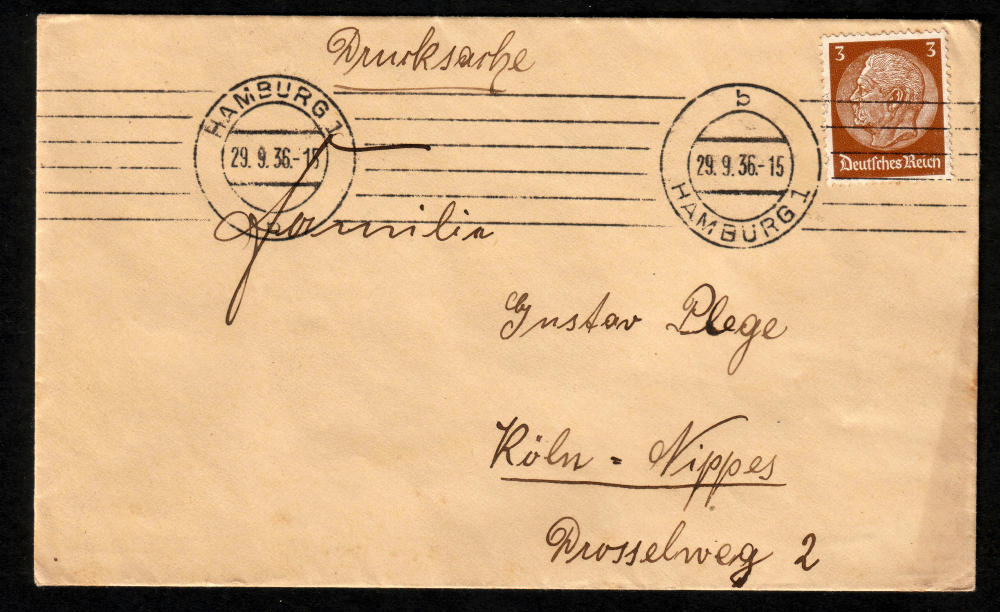 Drucksache
3 3
Deutsches Reich
HAMBURG 1
29. 9. 36.-15
b
29. 9. 36.-15
HAMBURG 1
Familie
Gustav Plege
Köln = Nippes
Drosselweg 2